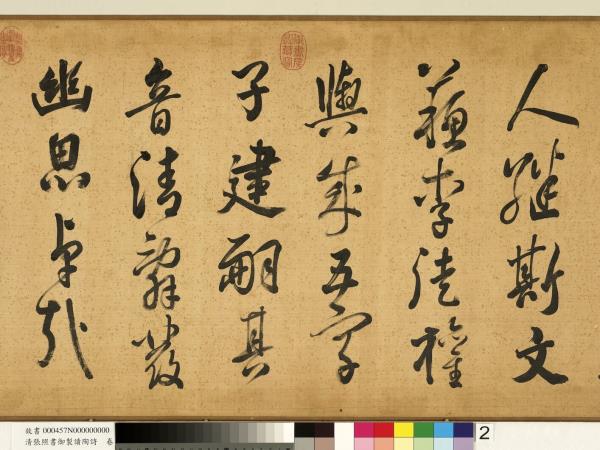 人繼斯文
蘇李徒權
輿成五字
子建嗣其
音清辭發
幽思卓哉
故書 000457N000000000
清張照書御製讀陶詩 卷
2